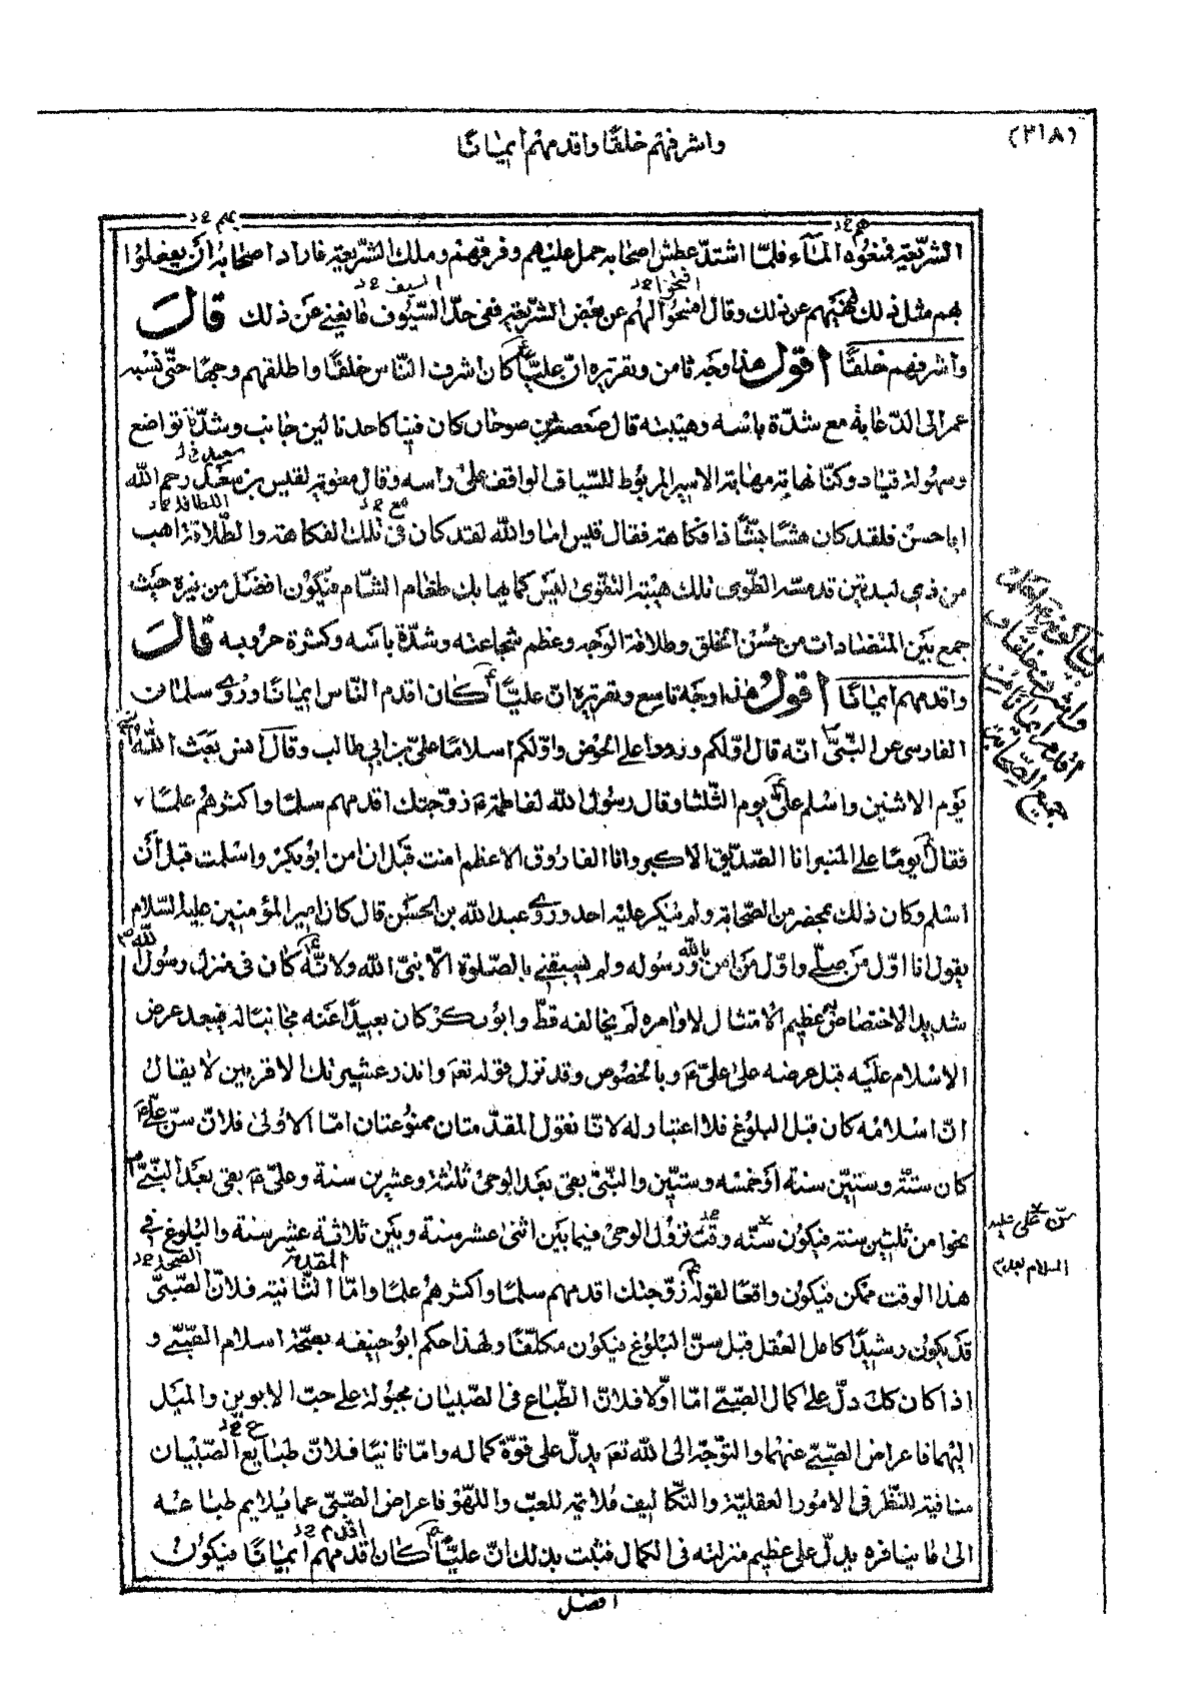 (٢١٨)
واشرفهم خلقًا واقدمهم ايمانًا
الشريعة فمنعوه الماء فلمّا اشتدّ عطش اصحابه حمل عليهم وفرقهم وملك الشريعة فاراد اصحابه أن يفعلوا
بهم مثل ذلك فنهيهم عن ذلك وقال افسحوا لهم عن بعض الشريعة ففى حدّ السّيوف ما يغنى عن ذلك قال
واشرفهم خلقًا اقول هذا وجه ثامن وتقريره انّ عليًّا كان اشرف الناس خلقًا واطلقهم وجهًا حتّى نسبه
عمر الى الدّعابة مع شدّة باسه وهيبته قال صعصعة بن صوحان كان فينا كاحدنا لين جانب وشدّة تواضع
وسهولة قياد وكنّا نهابه مهابة الاسير المربوط للسّياف الواقف على راسه وقال معوية لقيس بن سعد رحم الله
ابا حسن فلقد كان هشّا بشّا ذا فكاهة فقال قيس اما والله لقد كان فى تلك الفكاهة والطلاقة اهيب
من ذى لبدتين قد مسّه الطّوى تلك هيبة التقوى ليس كما يهابك طغام الشّام فيكون افضل من غيره حيث
جمع بين المتضادات من حسن الخلق وطلاقة الوجه وعظم شجاعته وشدّة باسه وكثرة حروبه قال
واقدمهم ايمانًا اقول هذا وجه تاسع وتقريره انّ عليًّا كان اقدم النّاس ايمانًا وروى سلمان
الفارسى عن النّبىّ انّه قال اوّلكم ورودا على الحوض واوّلكم اسلامًا علىّ بن ابى طالب وقال انس بعث الله
يوم الاثنين واسلم علىّ يوم الثلثا وقال رسول الله لفاطمة ع زوّجتك اقدمهم سلما واكثرهم علما
فقال يومًا على المنبر انا الصّديق الاكبر وانا الفاروق الاعظم امنت قبل ان امن ابو بكر واسلمت قبل أن
اسلم وكان ذلك بمحضر من الصّحابة ولم ينكر عليه احد وروى عبد الله بن الحسن قال كان امير المؤمنين عليه السّلام
يقول انا اوّل من صلّى واوّل من امن بالله ورسوله ولم يسبقنى بالصّلوة الّا نبىّ الله ولانّه كان فى منزل رسول الله
شديد الاختصاص به عظيم الامتثال لاوامره لم يخالفه قطّ وابو بكر كان بعيدًا عنه مجانبا له فيبعد عرض
الاسلام عليه قبل عرضه على علىّ ع وبالخصوص وقد نزل قوله تعم وانذر عشيرتك الاقربين لا يقال
انّ اسلامه كان قبل البلوغ فلا اعتبار له لانّا نقول المقدّمتان ممنوعتان امّا الاولى فلانّ سنّ علىّ ع
كان ستّة وستّين سنة او خمسه وستّين والنّبىّ بقى بعد الوحى ثلثة وعشرين سنة وعلىّ ع بقى بعد النّبىّ
نحوا من ثلثين سنة فيكون سنّه وقت نزول الوحى فيما بين اثنى عشر سنة وبين ثلاثة عشر سنة والبلوغ فى
هذا الوقت ممكن فيكون واقعًا لقوله زوّجتك اقدمهم سلما واكثرهم علما وامّا الثانية فلانّ الصّبىّ
قد يكون رشيدًا كامل العقل قبل سنّ البلوغ فيكون مكلّفًا ولهذا حكم ابو حنيفه بصحّة اسلام الصّبىّ و
اذا كان كك دلّ على كمال الصّبىّ امّا اوّلا فلانّ الطّباع فى الصّبيان مجبولة على حبّ الابوين والميل
اليهما فاعراض الصّبىّ عنهما والتوجّه الى الله تعم يدلّ على قوّة كماله وامّا ثانيًا فلانّ طبايع الصّبيان
منافية للنّظر فى الامور العقليّة والتّكاليف ملائمة للعب واللّهو فاعراض الصّبىّ عما يلايم طباعه
الى ما ينافره يدلّ على عظيم منزلته فى الكمال فثبت بذلك انّ عليًّا كان اقدمهم ايمانًا فيكون
افضل
سنّ على عليه
السلام بعد